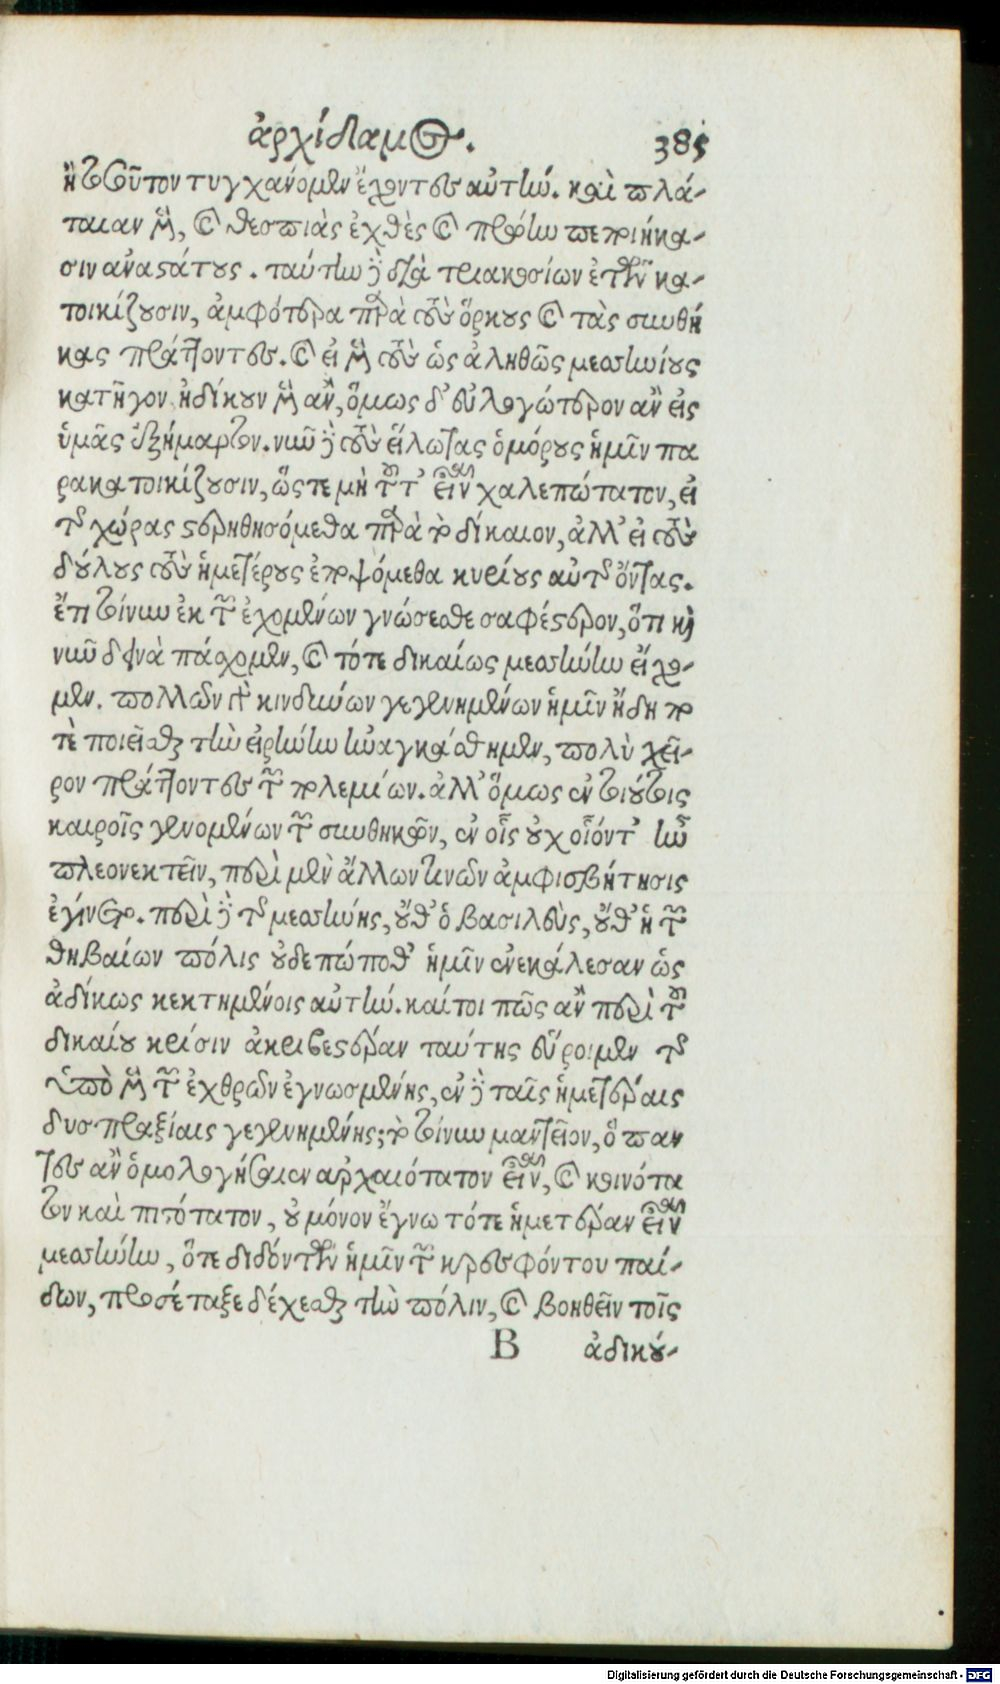 ἀρχίδαμος. 385
ἢ τοῦτον τυγχάνομεν ἔχοντες αὐτήν. καὶ πλά-
ταιαν μὲν, καὶ θεσπιὰς ἐχθὲς καὶ πρώην πεποιήκα-
σιν ἀναστάτους. ταύτην δὲ διὰ τριακοσίων ἐτῶν κα-
τοικίζουσιν, ἀμφότερα παρὰ τοὺς ὅρκους καὶ τὰς συνθή
κας πράττοντες. καὶ εἰ μὲν τοὺς ὡς ἀληθῶς μεσσηνίους
κατῆγον ἠδίκουν μὲν ἂν, ὅμως δ' εὐλογώτερον ἂν εἰς
ὑμᾶς ἐξήμαρτον. νῦν δὲ τοὺς εἵλωτας ὁμόρους ἡμῖν πα
ρακατοικίζουσιν, ὥστε μὴ τοῦτ' εἶναι χαλεπώτατον, εἰ
τῆς χώρας στερηθησόμεθα παρὰ τὸ δίκαιον, ἀλλ' εἰ τοὺς
δούλους τοὺς ἡμετέρους ἐποψόμεθα κυρίους αὐτῆς ὄντας.
ἔτι τοίνυν ἐκ τῶν ἐχομένων γνώσεσθε σαφέστερον, ὅτι καὶ
νῦν δεινὰ πάσχομεν, καὶ τότε δικαίως μεσσήνην εἴχο-
μεν. πολλῶν γὰρ κινδύνων γεγενημένων ἡμῖν ἤδη πο
τὲ ποιεῖσθαι τὴν εἰρήνην ἠναγκάσθημεν, πολὺ χεῖ-
ρον πράττοντες τῶν πολεμίων. ἀλλ' ὅμως ἐν τοιούτοις
καιροῖς γενομένων τῶν συνθηκῶν, ἐν οἷς οὐχ οἷόντ' ἦν
πλεονεκτεῖν, περὶ μὲν ἄλλων τινῶν ἀμφισβήτησις
ἐγίνετο. περὶ δὲ τῆς μεσσήνης, οὔθ' ὁ βασιλεὺς, οὔθ' ἡ τῶν
θηβαίων πόλις οὐδεπώποθ' ἡμῖν ἐνεκάλεσαν ὡς
ἀδίκως κεκτημένοις αὐτήν. καίτοι πῶς ἂν περὶ τοῦ
δικαίου κρίσιν ἀκριβεστέραν ταύτης εὕροιμεν τῆς
ὑπὸ μὲν τῶν ἐχθρῶν ἐγνωσμένης, ἐν δὲ ταῖς ἡμετέραις
δυσπραξίαις γεγενημένης; τὸ τοίνυν μαντεῖον, ὃ παν
τες ἂν ὁμολογήσαιεν ἀρχαιότατον εἶναι, καὶ κοινότα
τον καὶ πιστότατον, οὐ μόνον ἔγνω τότε ἡμετέραν εἶναι
μεσσήνην, ὅτε διδόντων ἡμῖν τῶν κρεσφόντου παί-
δων, προσέταξε δέχεσθαι τὴν πόλιν, καὶ βοηθεῖν τοῖς
Β ἀδικου-
Digitalisierung gefördert durch die Deutsche Forschungsgemeinschaft - DFG